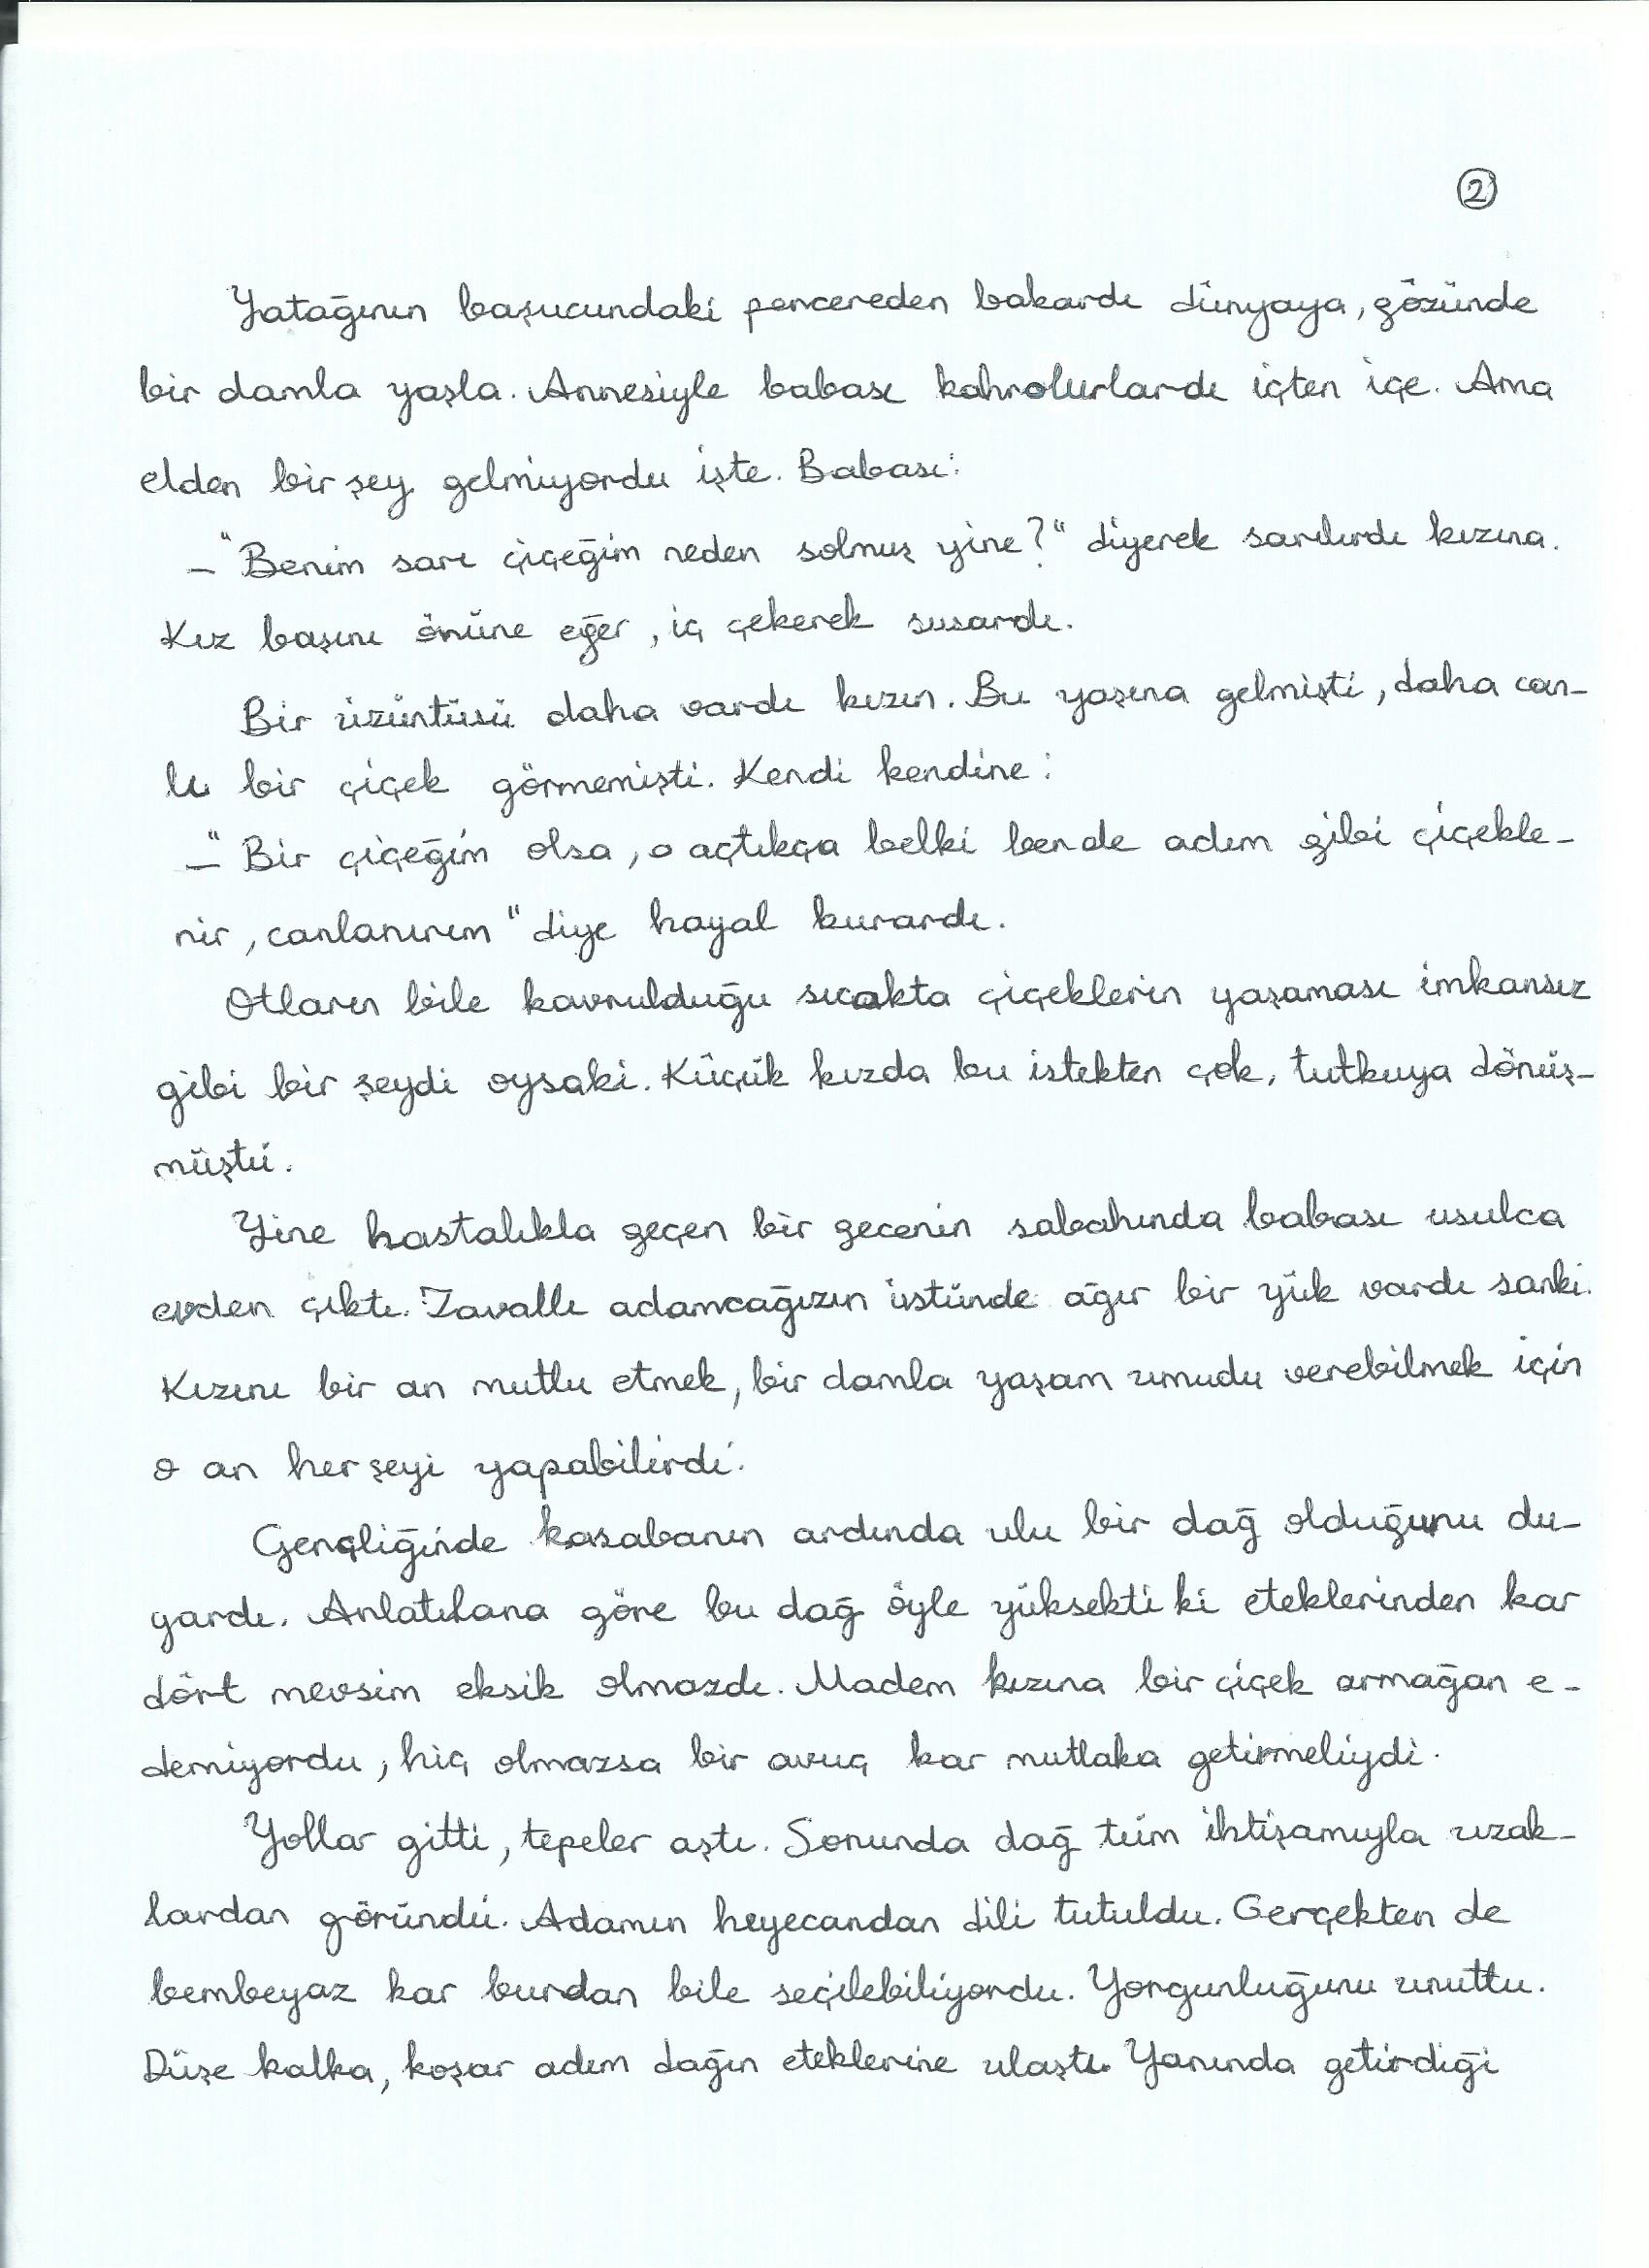 2
Yatağının başucundaki pencereden bakardı dünyaya, gözünde
bir damla yaşla. Annesiyle babası kahrolurlardı içten içe. Ama
elden bir şey gelmiyordu işte. Babası:
– "Benim sarı çiçeğim neden solmuş yine?" diyerek sarılırdı kızına.
Kız başını önüne eğer, iç çekerek susardı.
Bir üzüntüsü daha vardı kızın. Bu yaşına gelmişti, daha can-
lı bir çiçek görmemişti. Kendi kendine:
– "Bir çiçeğim olsa, o açtıkça belki ben de adım gibi çiçekle-
nir, canlanırım" diye hayal kurardı.
Otların bile kavrulduğu sıcakta çiçeklerin yaşaması imkansız
gibi bir şeydi oysaki. Küçük kızda bu istekten çok, tutkuya dönüş-
müştü.
Yine hastalıkla geçen bir gecenin sabahında babası usulca
evden çıktı. Zavallı adamcağızın üstünde ağır bir yük vardı sanki.
Kızını bir an mutlu etmek, bir damla yaşam umudu verebilmek için
o an her şeyi yapabilirdi.
Gençliğinde kasabanın ardında ulu bir dağ olduğunu du-
yardı. Anlatılana göre bu dağ öyle yüksekti ki eteklerinden kar
dört mevsim eksik olmazdı. Madem kızına bir çiçek armağan e-
demiyordu, hiç olmazsa bir avuç kar mutlaka getirmeliydi.
Yollar gitti, tepeler aştı. Sonunda dağ tüm ihtişamıyla uzak-
lardan göründü. Adamın heyecandan dili tutuldu. Gerçekten de
bembeyaz kar burdan bile seçilebiliyordu. Yorgunluğunu unuttu.
Düşe kalka, koşar adım dağın eteklerine ulaştı. Yanında getirdiği